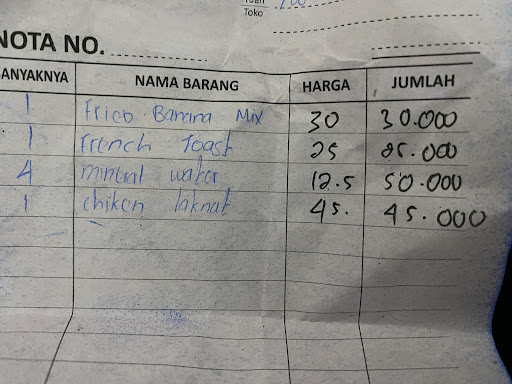 Tuan
Toko
NOTA NO.
BANYAKNYA NAMA BARANG HARGA JUMLAH
1 Fried Banana Mix 30 30.000
1 French Toast 25 25.000
4 mineral water 12.5 50.000
1 chiken laknat 45. 45.000